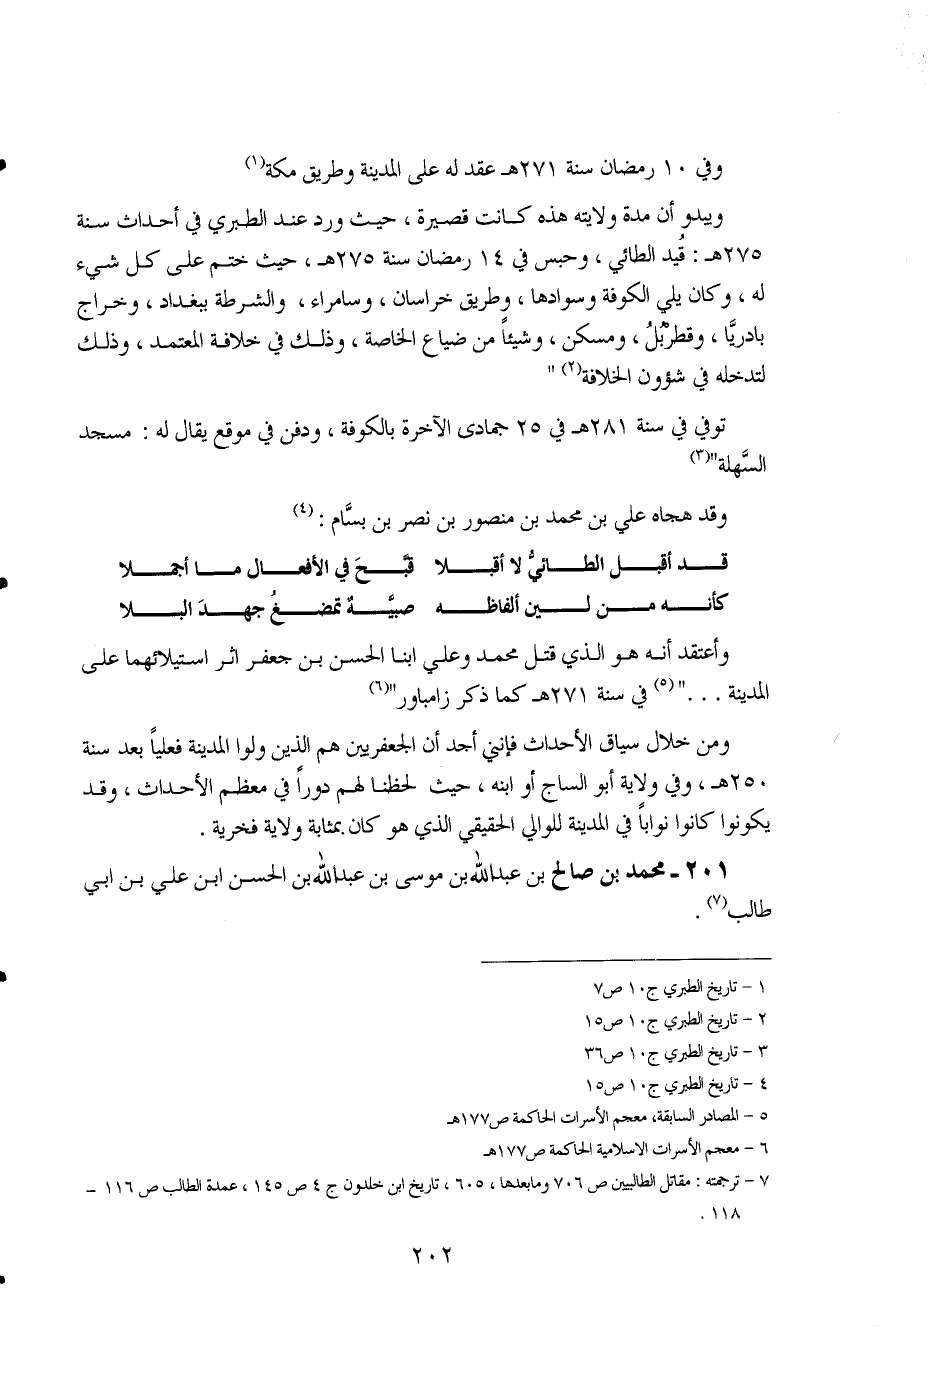 وفي ١٠ رمضان سنة ٢٧١هـ عقد له على المدينة وطريق مكة(١)
ويبدو أن مدة ولايته هذه كانت قصيرة ، حيث ورد عند الطبري في أحداث سنة
٢٧٥هـ : قُيد الطائي ، وحبس في ١٤ رمضان سنة ٢٧٥هـ ، حيث ختم على كل شيء
له ، وكان يلي الكوفة وسوادها ، وطريق خراسان ، وسامراء ، والشرطة ببغداد ، وخراج
بادريَّا ، وقطربُّلُ ، ومسكن ، وشيئاً من ضياع الخاصة ، وذلك في خلافة المعتمد ، وذلك
لتدخله في شؤون الخلافة(٢) "
توفي في سنة ٢٨١هـ في ٢٥ جمادى الآخرة بالكوفة ، ودفن في موقع يقال له : مسجد
السَّهلة"(٣)
وقد هجاه علي بن محمد بن منصور بن نصر بن بسَّام : (٤)
قـد أقبـل الطـائيُّ لا أقبـلا قبَّـحَ في الأفعـال مـا أجمـلا
كأنـه مـن لـين ألفاظـه صبيَّـةٌ تمضـغُ جهـدَ البـلا
وأعتقد أنه هو الذي قتل محمد وعلي ابنا الحسن بن جعفر اثر استيلائهما على
المدينة . . ."(٥) في سنة ٢٧١هـ كما ذكر زامباور"(٦)
ومن خلال سياق الأحداث فإنني أجد أن الجعفريين هم الذين ولوا المدينة فعلياً بعد سنة
٢٥٠هـ ، وفي ولاية أبو الساج أو ابنه ، حيث لحظنا لهم دوراً في معظم الأحداث ، وقد
يكونوا كانوا نواباً في المدينة للوالي الحقيقي الذي هو كان بمثابة ولاية فخرية .
٢٠١ ـ محمد بن صالح بن عبدالله بن موسى بن عبدالله بن الحسن ابن علي بن ابي
طالب(٧) .
١ - تاريخ الطبري ج١٠ ص٧
٢ - تاريخ الطبري ج١٠ ص١٥
٣ - تاريخ الطبري ج١٠ ص٣٦
٤ - تاريخ الطبري ج١٠ ص١٥
٥ - المصادر السابقة، معجم الأسرات الحاكمة ص١٧٧هـ
٦ - معجم الأسرات الاسلامية الحاكمة ص١٧٧هـ
٧ - ترجمته : مقاتل الطالبيين ص ٧٠٦ ومابعدها ، ٦٠٥ ، تاريخ ابن خلدون ج ٤ ص ١٤٥ ، عمدة الطالب ص ١١٦ -
١١٨ .
٢٠٢